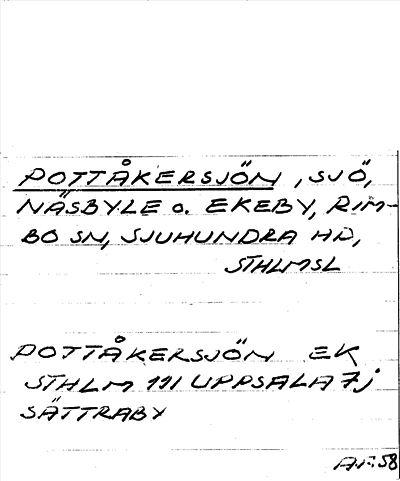 POTTÅKERSJÖN, SJÖ,
NÄSBYLE o. EKEBY, RIM-
BO SN, SJUHUNDRA HD,
STHLMSL
POTTÅKERSJÖN EK
STHLM 111 UPPSALA 7j
SÄTTRABY